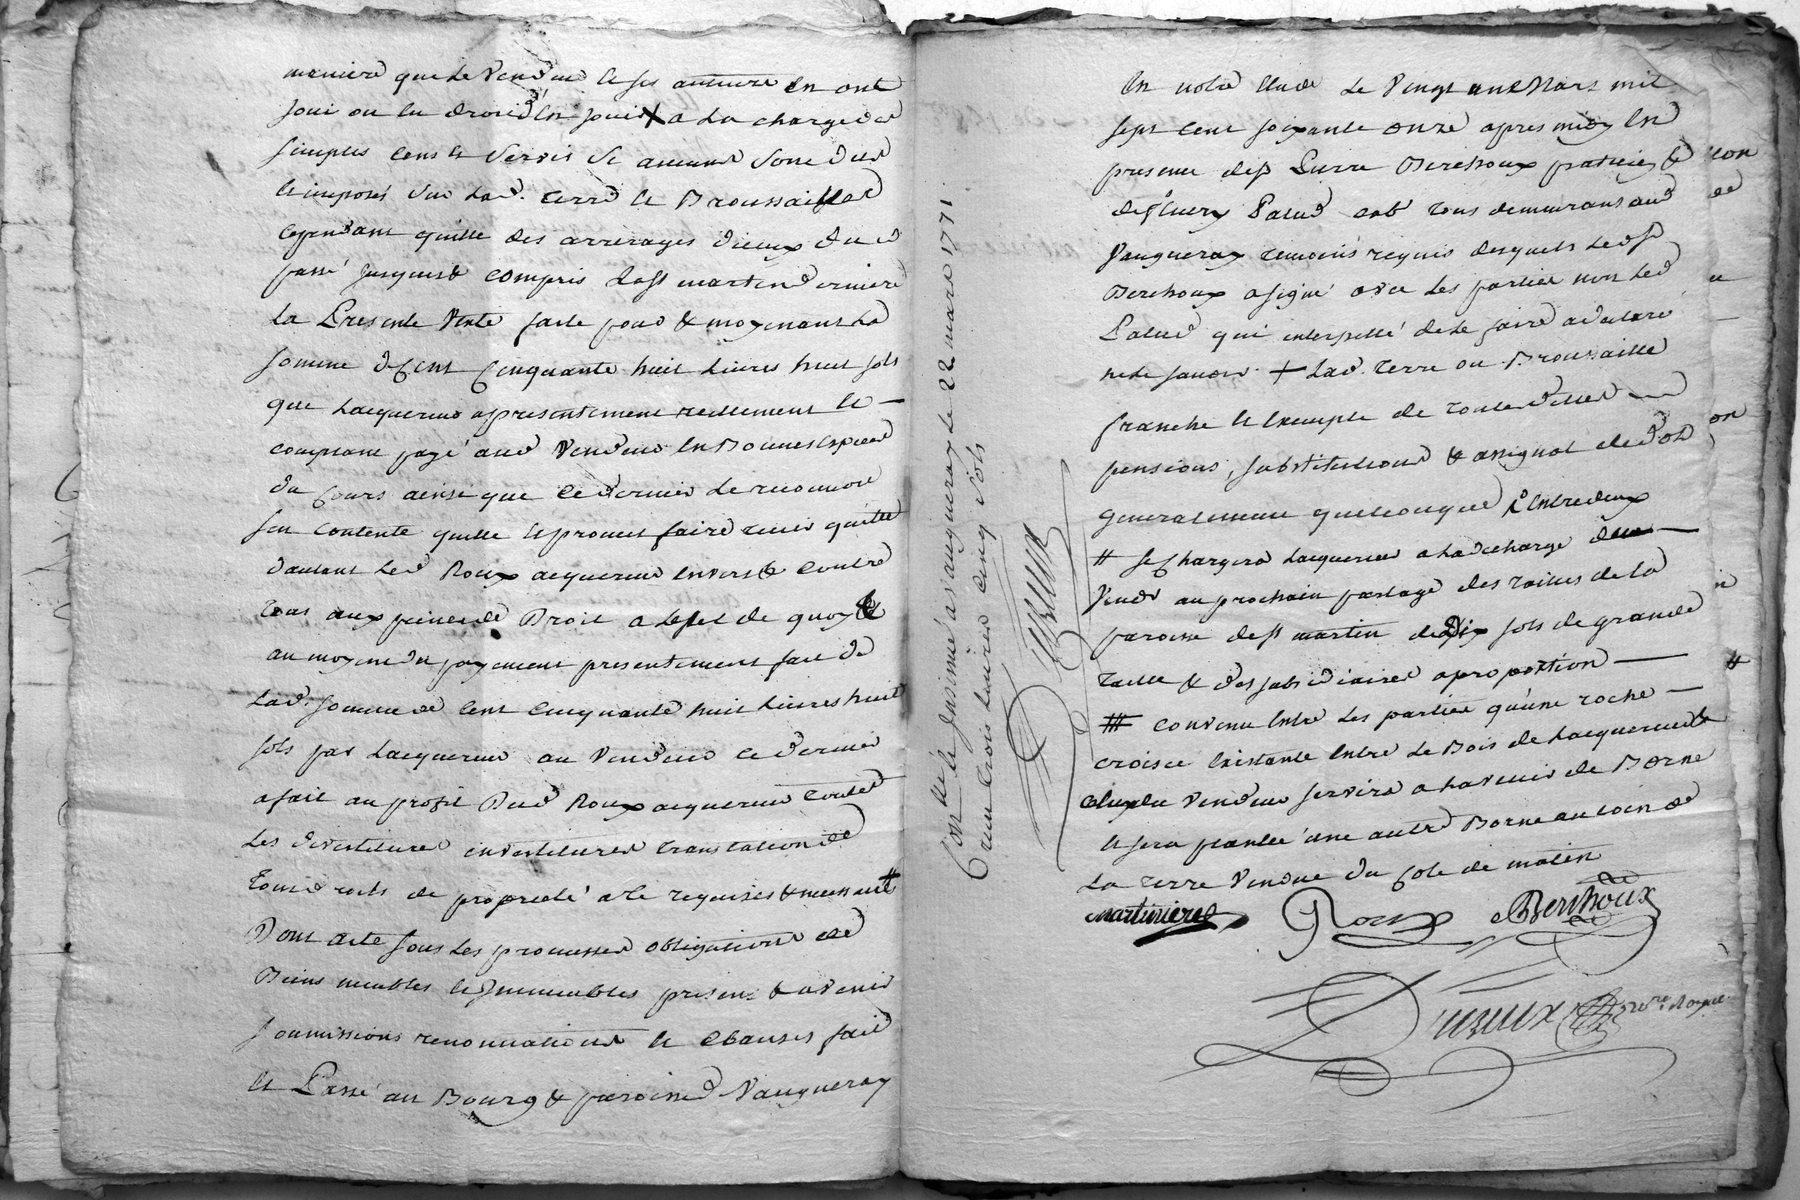 maniere que le Vendeur et ses autheurs en ont
joui ou eu droit d'en jouir X a la charge des
simples cens et servis si aucuns sont dus
et imposés sur lad. terre et Broussailles
cependant quitte des arrerages d'iceux du
passé jusques & compris la st martin derniere
La Presente Vente faite pour & moyenant la
somme de Cent Cinquante huit Livres huit sols
que Lacquereur a presentement reellement et
comptant payé aud Vendeur en Bonnes Especes
du Cours ainsi que ce dernier le reconnoit
s'en contente quitte et promet faire tenir quitte
d'autant led Roux acquereur envers & contre
tous aux peines de Droit a l'effet de quoy &
au moyen du payement presentement fait de
Lad. somme de Cent Cinquante huit Livres huit
sols par Lacquereur au Vendeur ce dernier
a fait au profit Dud Roux acquereur toutes
Les devestitures investitures translations de
tous droits de proprieté a ce requises & necessaires #
Dont acte sous Les promesses obligations de
Biens meubles et Immeubles presens & avenir
soumissions renonciations et clauses fait
et Passé au Bourg & paroisse Vaugneray
Con.lle & Insinué a vaugneray Le 22 mars 1771.
reçu trois Livres cinq sols
Duzeux
En notre Etude Le Vingt un Mars mil
sept cent soixante onze apres midy En
presence de sr Pierre Berthoux praticien &
de fleury Palud cab. tous demeurans aud
Vaugneray temoins requis desquels led sr
Berthoux a signé avec Les parties non led
Palud qui interpellé de le faire a declaré
ne le savoir. + Lad. terre ou Broussaille
franche et Exempte de toutes dettes
pensions, substitutions & assignat de dot
generalement quelconque entre deux
# se Chargera Lacquereur a la decharge du
Vendr au prochain partage des tailles de la
paroisse de st martin de Dix sols de grande
taille & des subsidiaires a proportion
## convenu Entre Les parties qu'une roche
croisée Existante Entre Le Bois de Lacquereur &
celuy du Vendeur servira a l'avenir de Borne
et sera plantée une autre Borne au coin de
La terre Vendue du Coté de matin
Martiniere Roux Berthoux
Duzeux Nore Royal